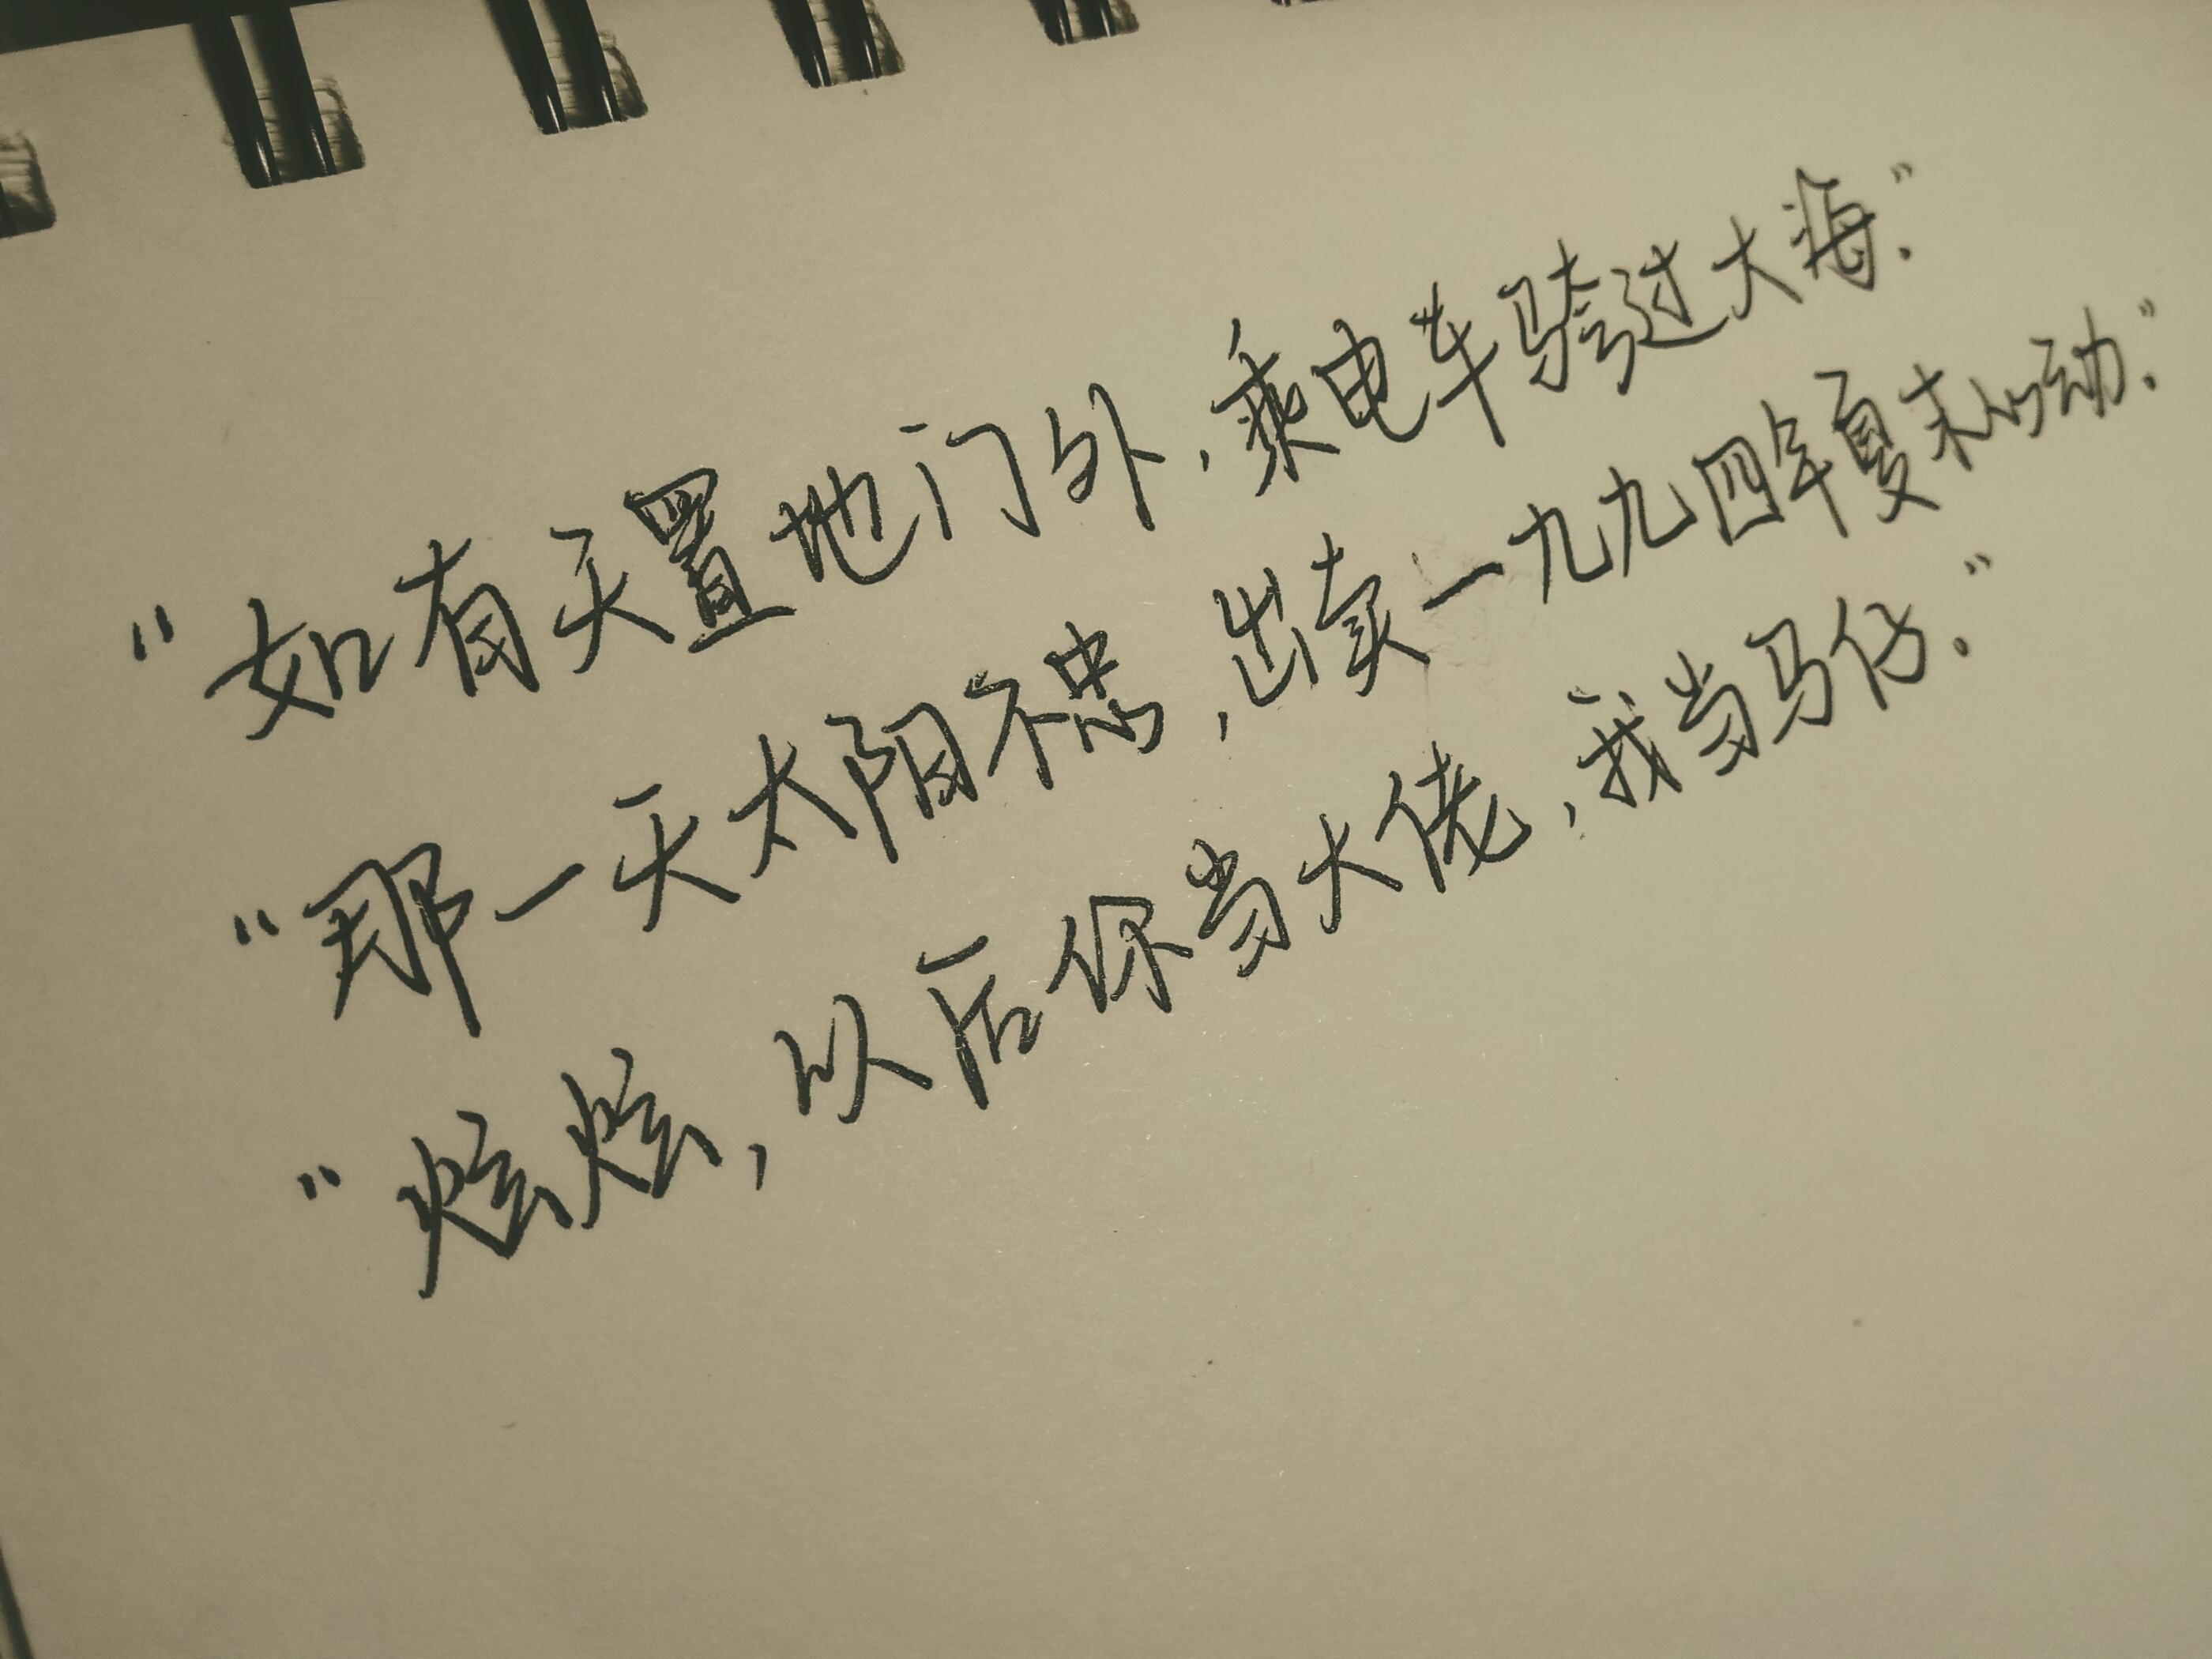 “如有天置地门外，乘电车骑过大海.”
“那一天太阳不忠，出卖一九九四年夏末心动.”
“炫炫，以后你当大佬，我当马仔.”